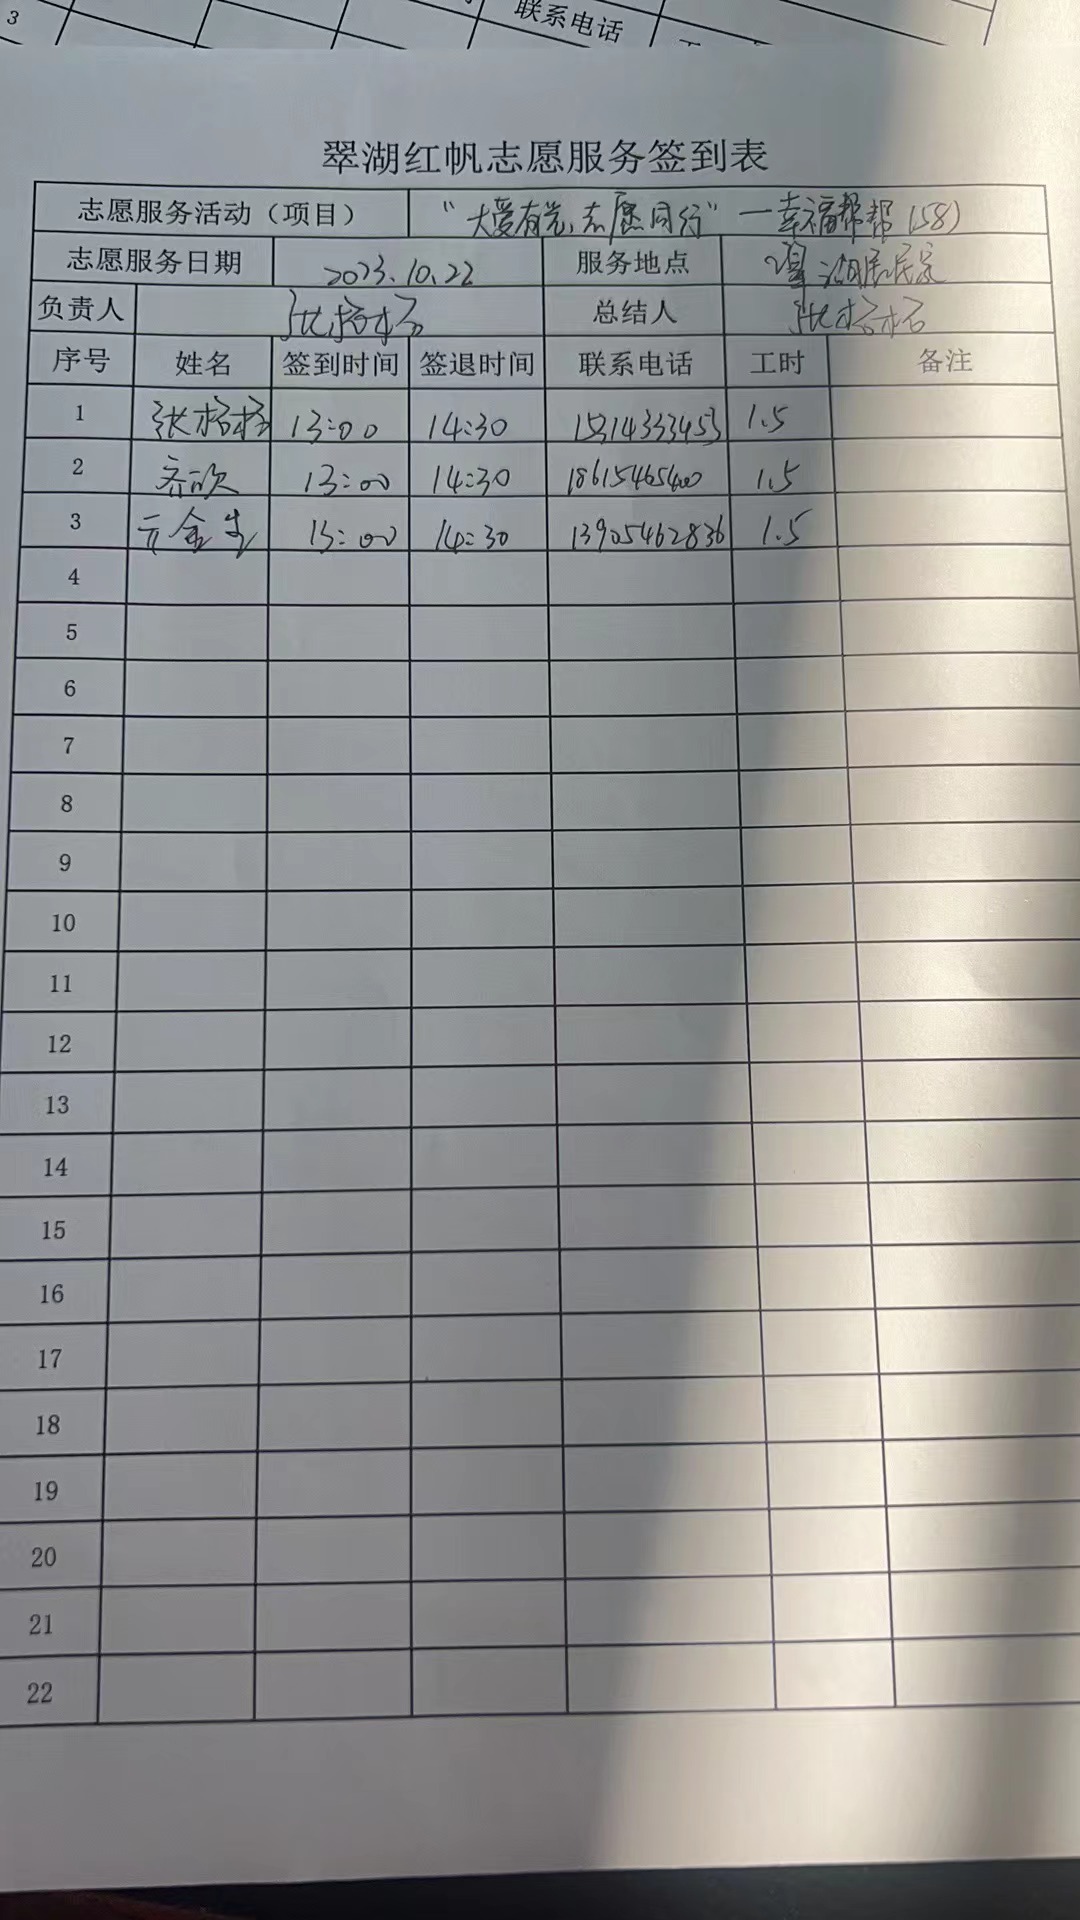 3 联系电话
翠湖红帆志愿服务签到表
志愿服务活动（项目） “大爱有光，志愿同行”—幸福帮帮(58)
志愿服务日期 2023.10.22 服务地点 翠湖居民家
负责人 总结人
序号 姓名 签到时间 签退时间 联系电话 工时 备注
1 13:00 14:30 15314333453 1.5
2 齐欣 13:00 14:30 18615465400 1.5
3 亓金生 13:00 14:30 13905462836 1.5
4
5
6
7
8
9
10
11
12
13
14
15
16
17
18
19
20
21
22